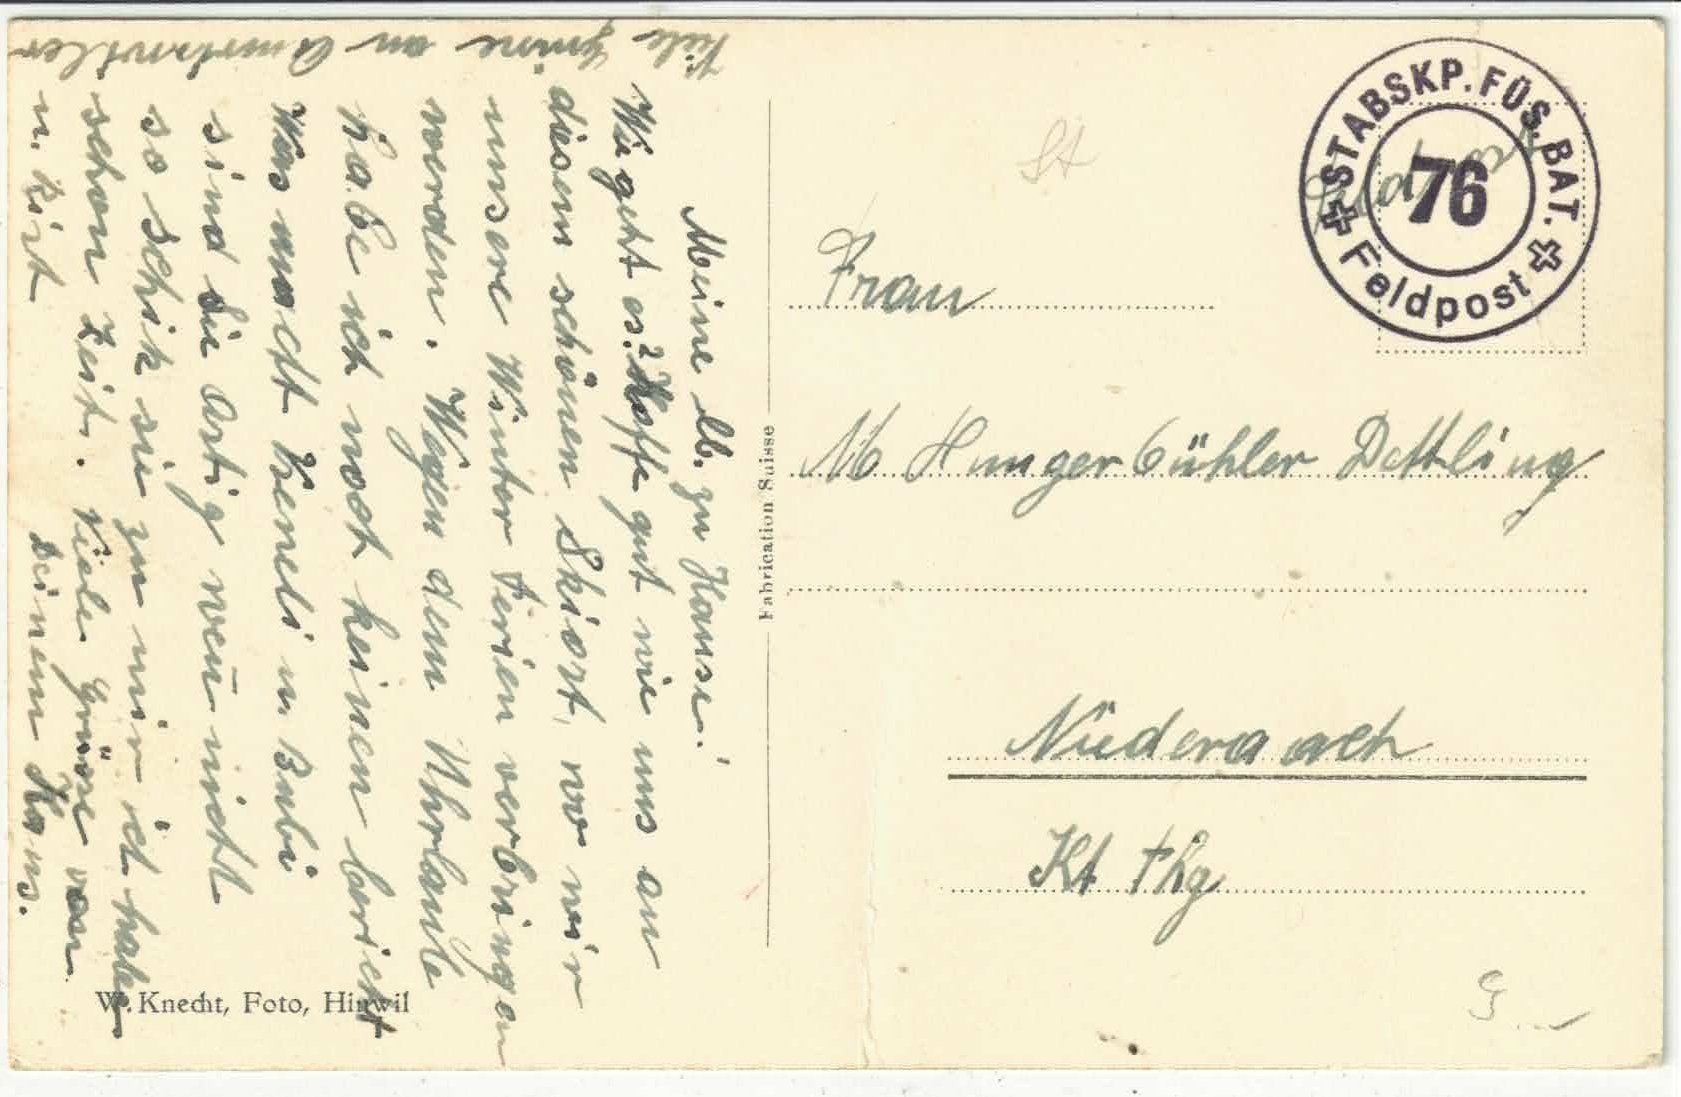 Meine lb. zu Hause.
Wie geht es? Hoffe gut wie uns an
diesem schönen Skiort, wo wir
unsere Winter Ferien verbringen
werden. Wegen dem Uhrlaub
habe ich noch keinen bericht
Was macht Heneli u. Bubi
sind Sie Artig wen̄ nicht
so schik sie zu mir ich habe
schon Zeit. Viele Grüsse von
deinem Hans.
Viele Grüsse an
u.
W. Knecht, Foto, Hinwil
Fabrication Suisse
STABSKP. FÜS. BAT.
76
Feldpost
Feldpost
St
Frau
M Hungerbühler Dettling
Niederaach
Kt Thg